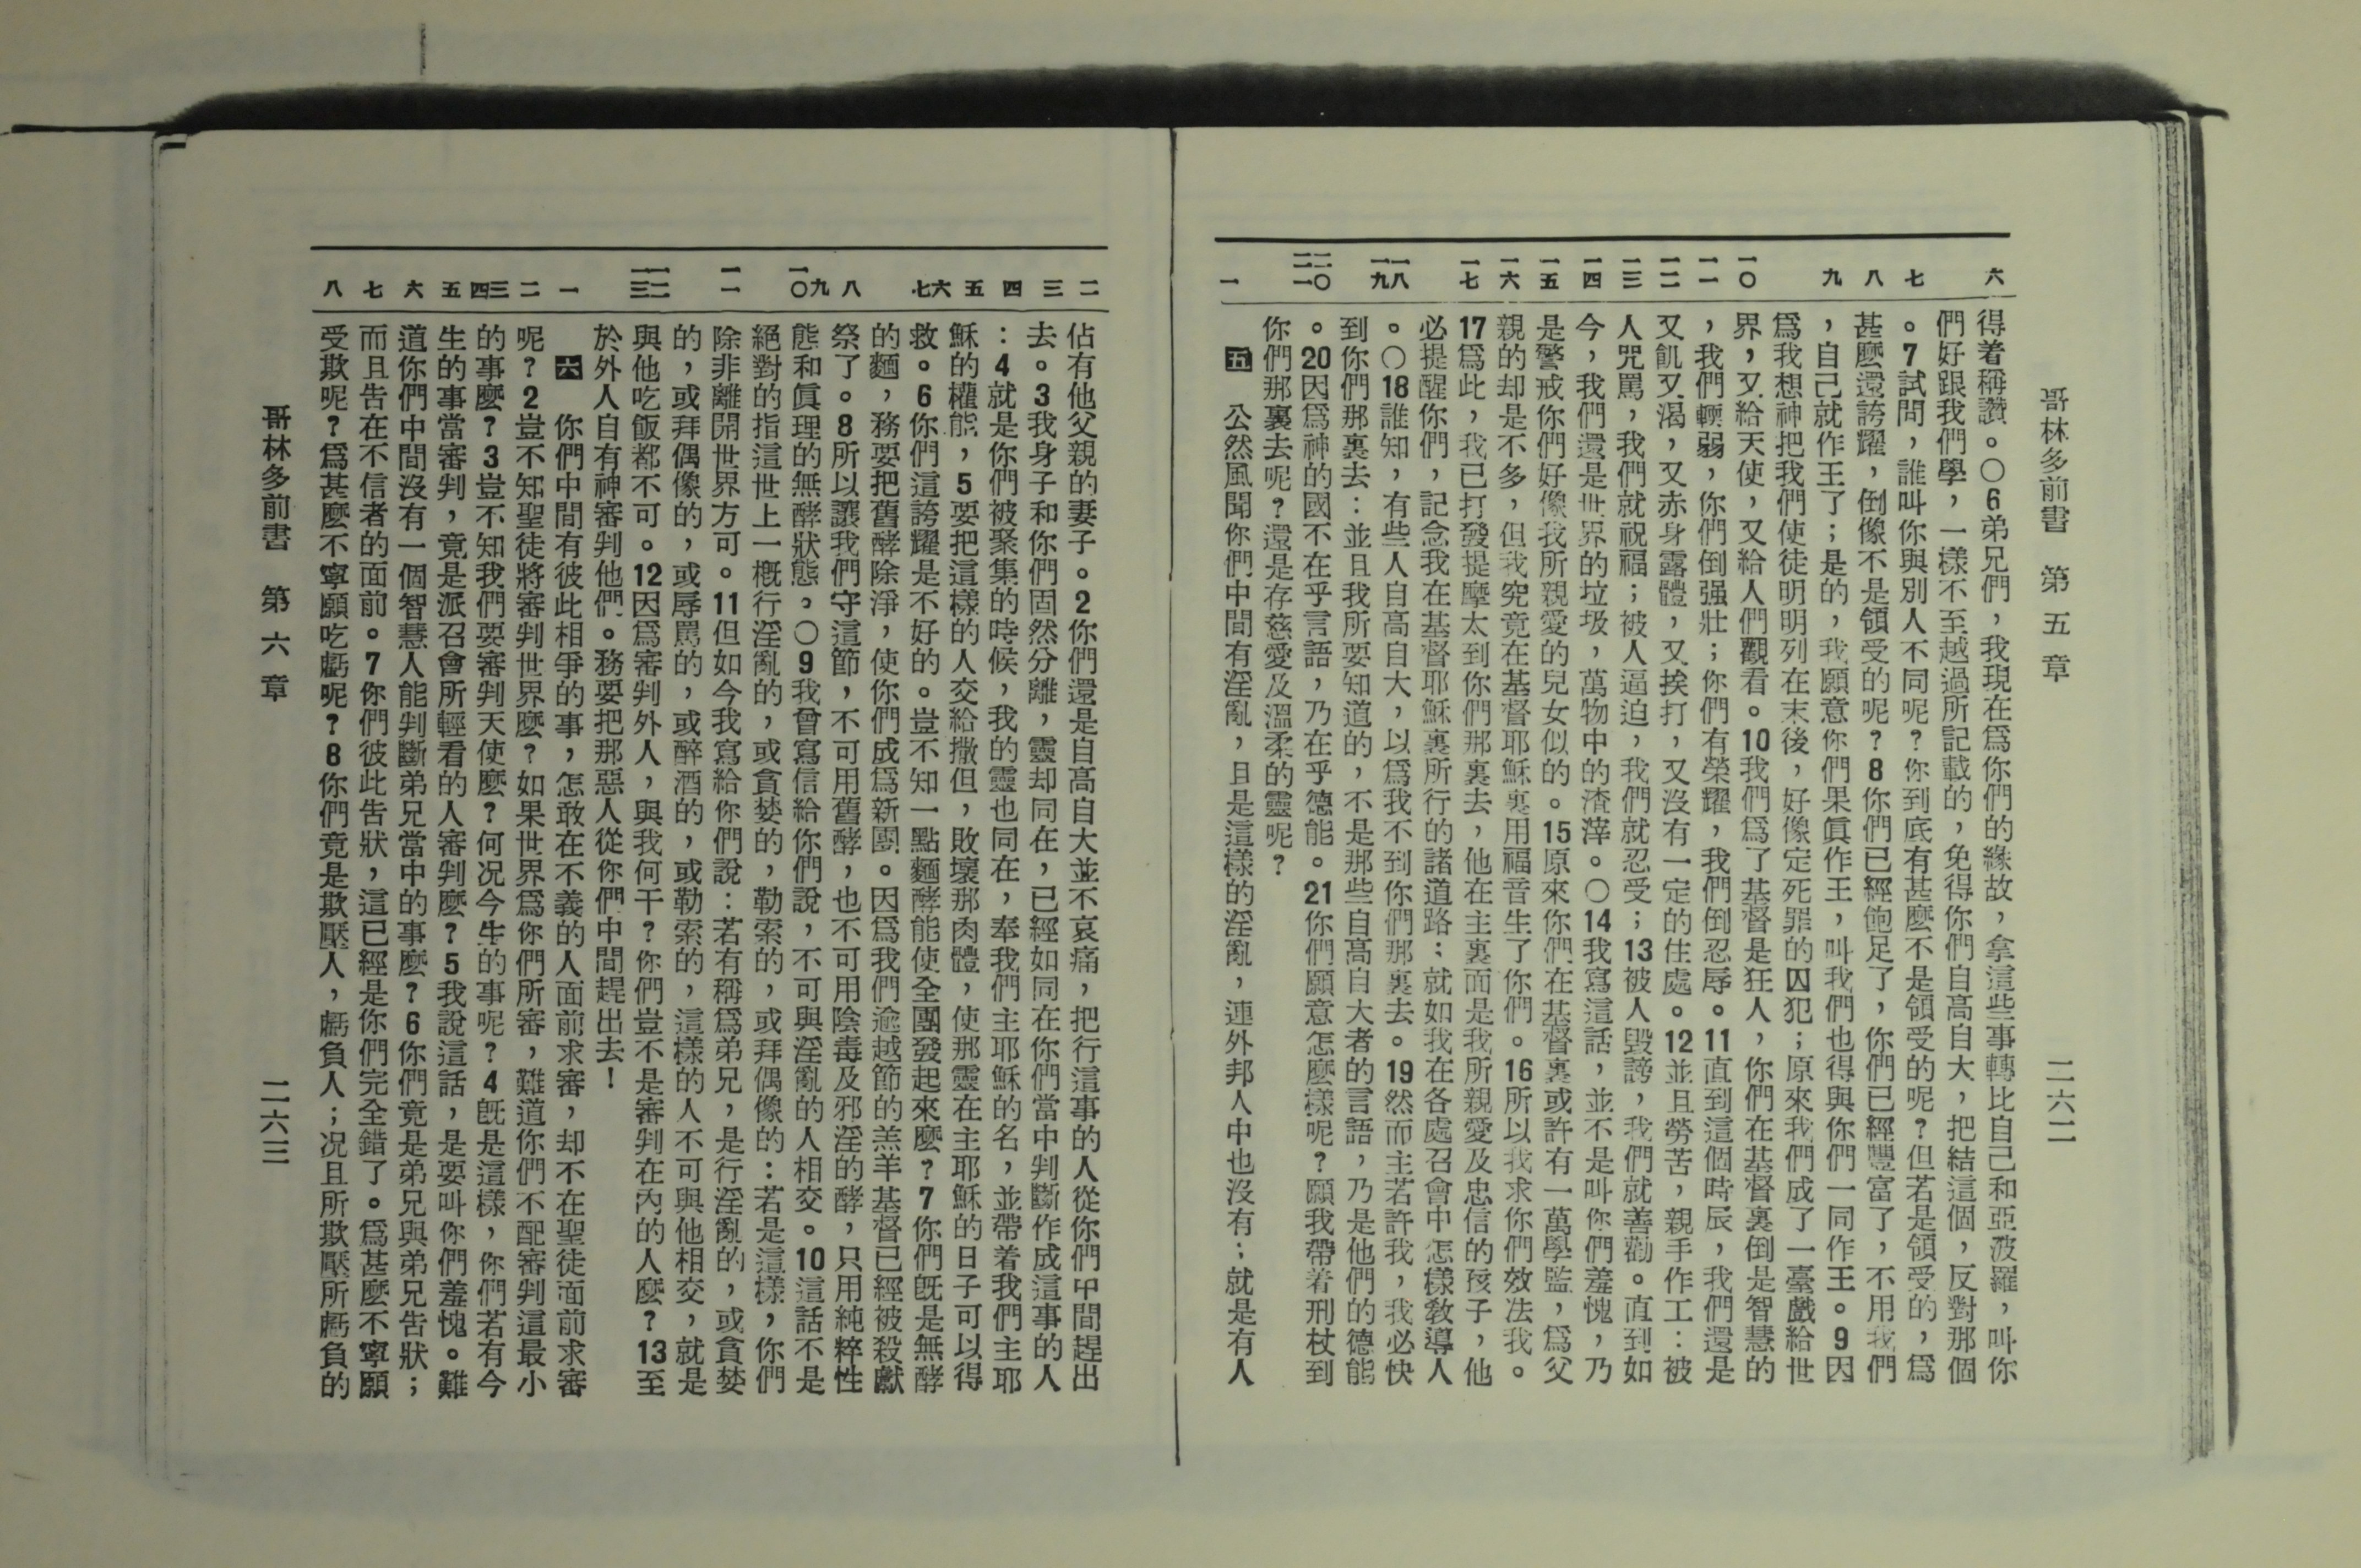 哥林多前書　第五章　二六二
六 七 八 九 一〇 一一 一二 一三 一四 一五 一六 一七 一八 一九 二〇 二一 一
得着稱讚。〇6弟兄們，我現在爲你們的緣故，拿這些事轉比自己和亞波羅，叫你
們好跟我們學，一樣不至越過所記載的，免得你們自高自大，把結這個，反對那個
。7試問，誰叫你與別人不同呢？你到底有甚麼不是領受的呢？但若是領受的，爲
甚麼還誇耀，倒像不是領受的呢？8你們已經飽足了，你們已經豐富了，不用我們
，自己就作王了；是的，我願意你們果眞作王，叫我們也得與你們一同作王。9因
爲我想神把我們使徒明明列在末後，好像定死罪的囚犯；原來我們成了一臺戲給世
界，又給天使，又給人們觀看。10我們爲了基督是狂人，你們在基督裏倒是智慧的
，我們輭弱，你們倒强壯；你們有榮耀，我們倒忍辱。11直到這個時辰，我們還是
又飢又渴，又赤身露體，又挨打，又沒有一定的住處。12並且勞苦，親手作工：被
人咒罵，我們就祝福；被人逼迫，我們就忍受；13被人毀謗，我們就善勸。直到如
今，我們還是世界的垃圾，萬物中的渣滓。〇14我寫這話，並不是叫你們羞愧，乃
是警戒你們好像我所親愛的兒女似的。15原來你們在基督裏或許有一萬學監，爲父
親的却是不多，但我究竟在基督耶穌裏用福音生了你們。16所以我求你們效法我。
17爲此，我已打發提摩太到你們那裏去，他在主裏面是我所親愛及忠信的孩子，他
必提醒你們，記念我在基督耶穌裏所行的諸道路：就如我在各處召會中怎樣敎導人
。〇18誰知，有些人自高自大，以爲我不到你們那裏去。19然而主若許我，我必快
到你們那裏去：並且我所要知道的，不是那些自高自大者的言語，乃是他們的德能
。20因爲神的國不在乎言語，乃在乎德能。21你們願意怎麼樣呢？願我帶着刑杖到
你們那裏去呢？還是存慈愛及溫柔的靈呢？
五　公然風聞你們中間有淫亂，且是這樣的淫亂，連外邦人中也沒有；就是有人
二 三 四 五 六 七 八 九 一〇 一一 一二 一三 一 二 三 四 五 六 七 八
佔有他父親的妻子。2你們還是自高自大並不哀痛，把行這事的人從你們中間趕出
去。3我身子和你們固然分離，靈却同在，已經如同在你們當中判斷作成這事的人
：4就是你們被聚集的時候，我的靈也同在，奉我們主耶穌的名，並帶着我們主耶
穌的權能，5要把這樣的人交給撒但，敗壞那肉體，使那靈在主耶穌的日子可以得
救。6你們這誇耀是不好的。豈不知一點麵酵能使全團發起來麼？7你們旣是無酵
的麵，務要把舊酵除淨，使你們成爲新團。因爲我們逾越節的羔羊基督已經被殺獻
祭了。8所以讓我們守這節，不可用舊酵，也不可用陰毒及邪淫的酵，只用純粹性
態和眞理的無酵狀態。〇9我曾寫信給你們說，不可與淫亂的人相交。10這話不是
絕對的指這世上一概行淫亂的，或貪婪的，勒索的，或拜偶像的：若是這樣，你們
除非離開世界方可。11但如今我寫給你們說：若有稱爲弟兄，是行淫亂的，或貪婪
的，或拜偶像的，或辱罵的，或醉酒的，或勒索的，這樣的人不可與他相交，就是
與他吃飯都不可。12因爲審判外人，與我何干？你們豈不是審判在內的人麼？13至
於外人自有神審判他們。務要把那惡人從你們中間趕出去！
六　你們中間有彼此相爭的事，怎敢在不義的人面前求審，却不在聖徒面前求審
呢？2豈不知聖徒將審判世界麼？如果世界爲你們所審，難道你們不配審判這最小
的事麼？3豈不知我們要審判天使麼？何况今生的事呢？4旣是這樣，你們若有今
生的事當審判，竟是派召會所輕看的人審判麼？5我說這話，是要叫你們羞愧。難
道你們中間沒有一個智慧人能判斷弟兄當中的事麼？6你們竟是弟兄與弟兄告狀；
而且告在不信者的面前。7你們彼此告狀，這已經是你們完全錯了。爲甚麼不寧願
受欺呢？爲甚麼不寧願吃虧呢？8你們竟是欺壓人，虧負人；况且所欺壓所虧負的
哥林多前書　第六章　二六三